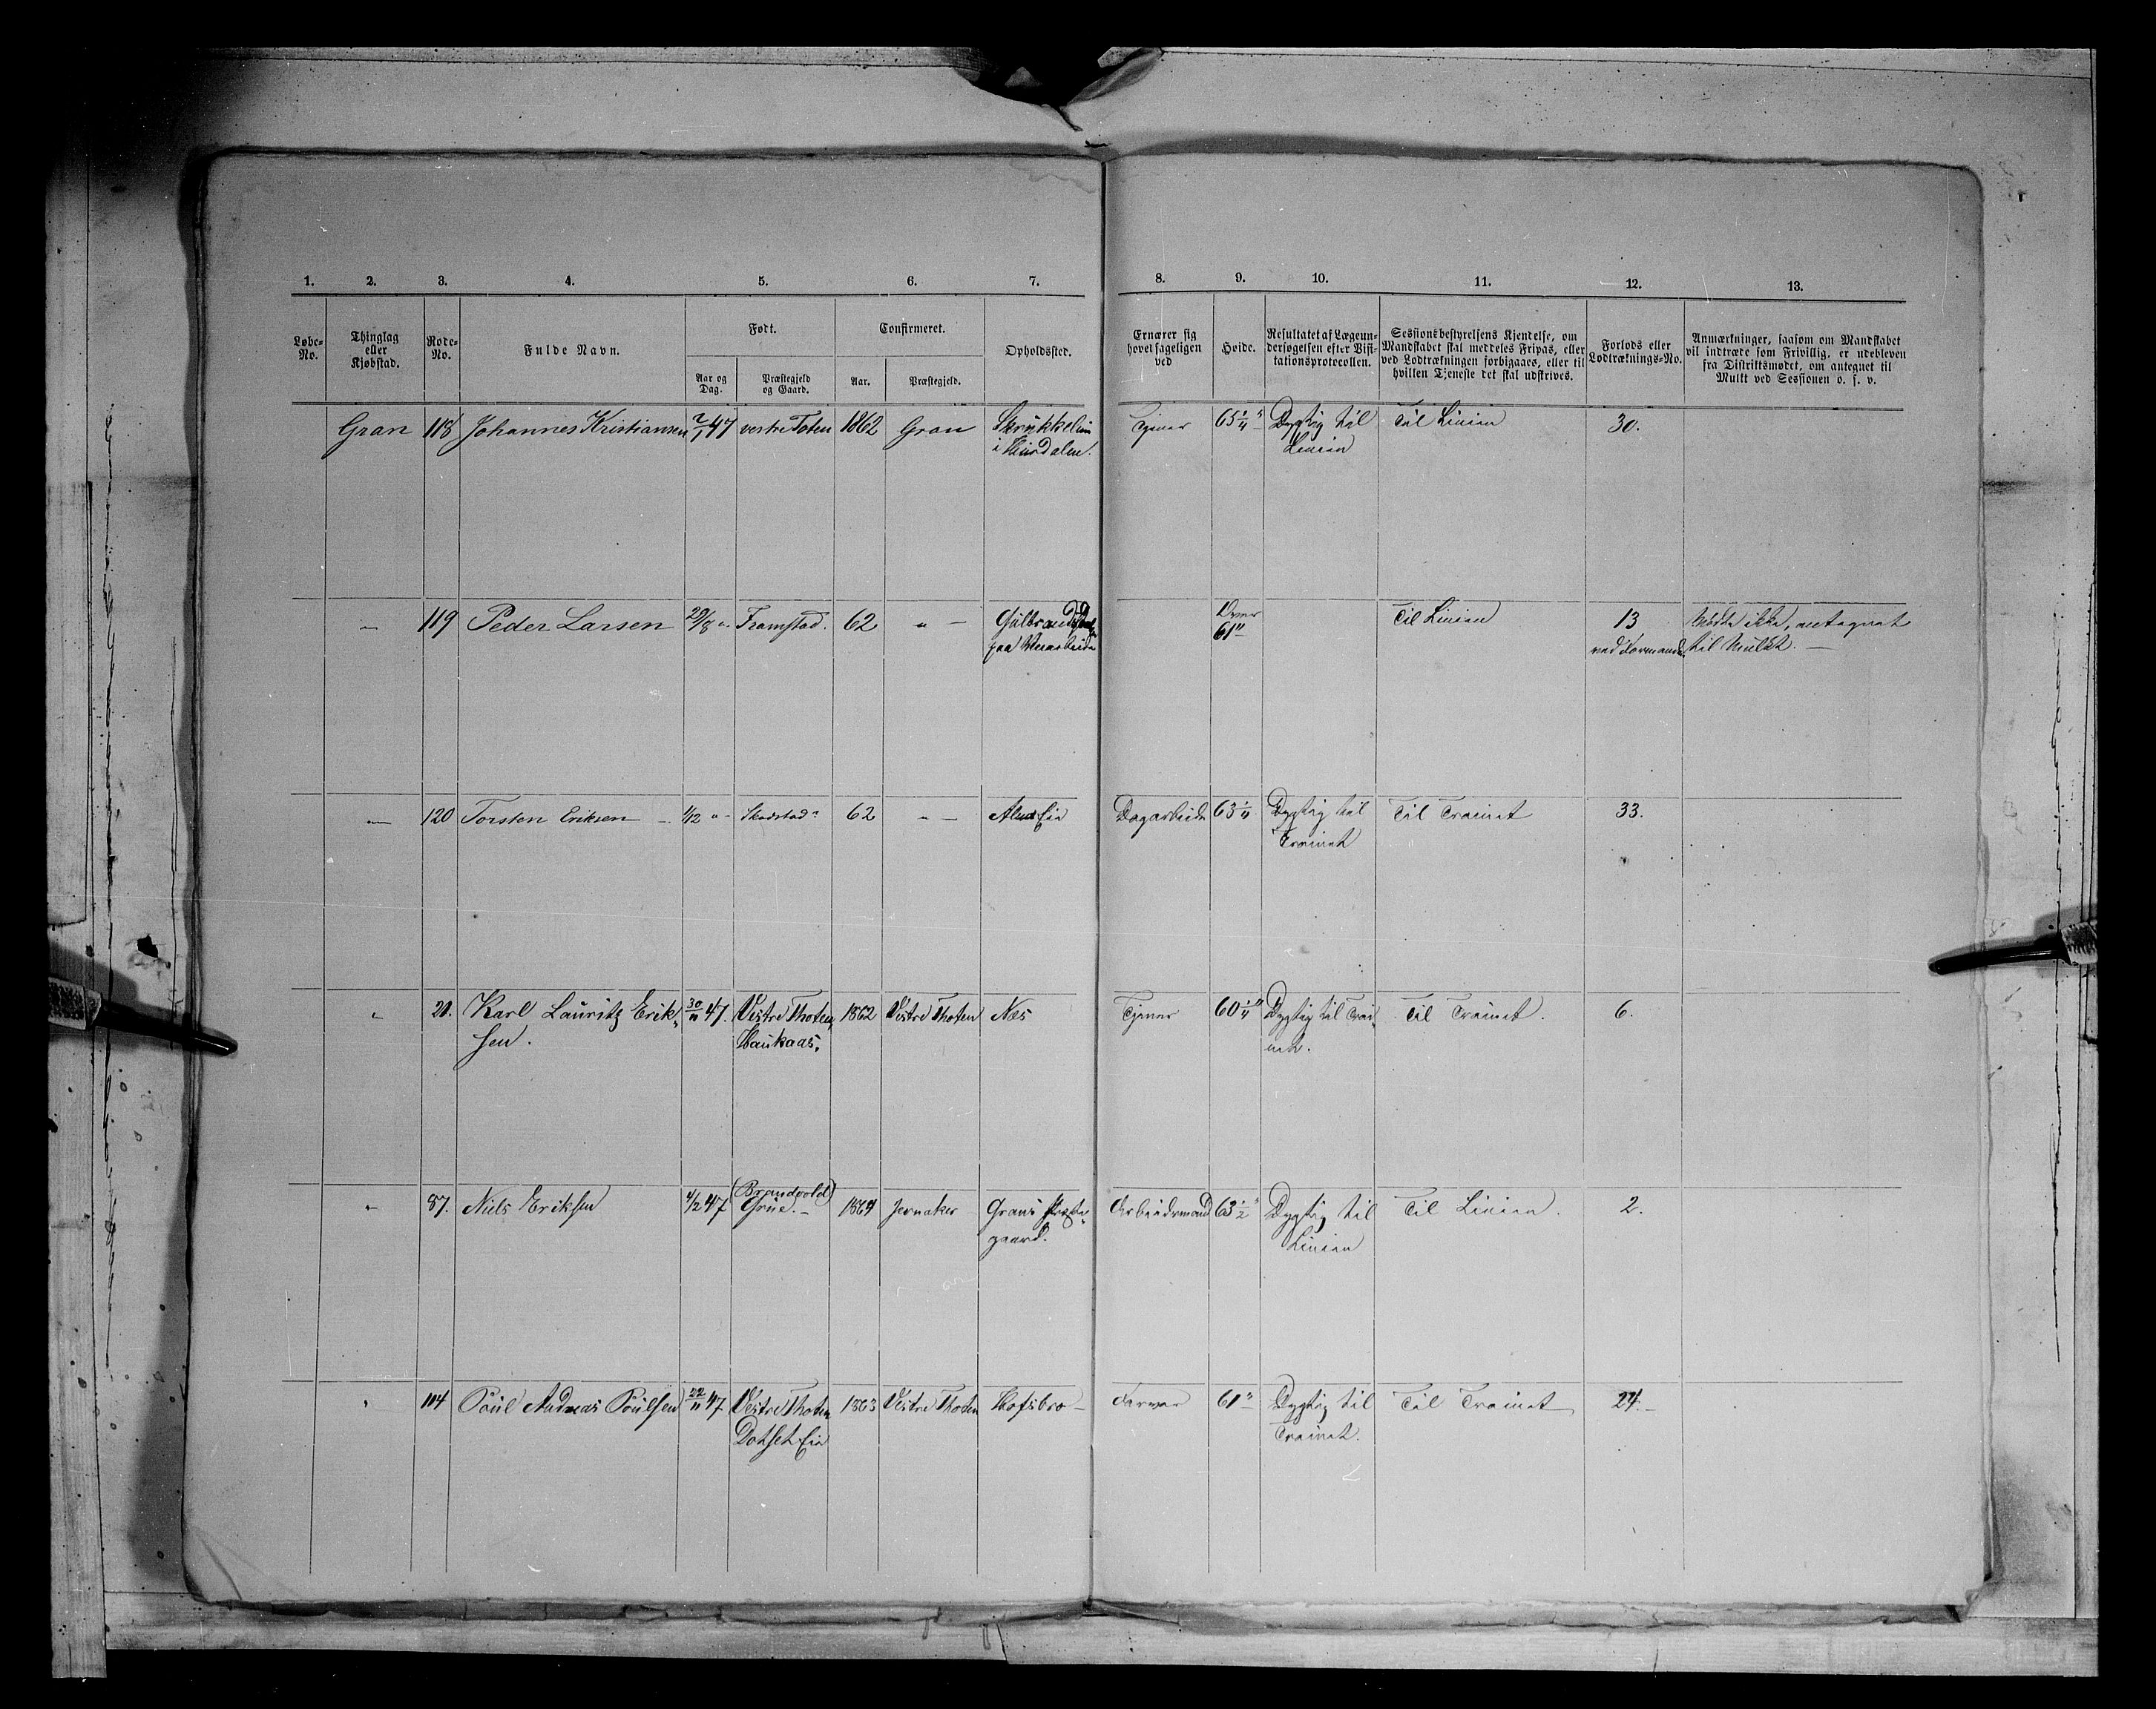 1. 2. 3. 4. 5. 6. 7. 8. 9. 10. 11. 12. 13.
Løbe-No.
Thinglag eller Kjøbstad.
Rode-No.
Fulde Navn.
Født.
Aar og Dag.
Præstegjeld og Gaard.
Confirmeret.
Aar.
Præstegjeld.
Opholdssted.
Ernærer sig hovedsageligen ved
Høide.
Resultatet af Lægeun-
dersøgelsen efter Visi-
tationsprotocollen.
Sessionsbestyrelsens Kjendelse, om
Mandskabet skal meddeles Fripas, eller
ved Lodtrækningen forbigaaes, eller til
hvilken Tjeneste det skal udskrives.
Forlods eller
Lodtræknings-No.
Anmærkninger, saasom om Mandskabet
vil indtræde som Frivillig, er udebleven
fra Distriktsmødet, om antegnet til
Mulkt ved Sessionen o. s. v.
Gran 118 Johannes Kristiansen 2/1 47 vestre Toten 1862 Gran Tjener 65 1/4" Dygtig til Til Linien 30.
i Hurdalen. Linien
— 119 Peder Larsen 29/8 " Framstad. 62 " — 61" Til Linien 13 Mødte ikke, antegnet
paa til Mulkt. —
— 120 Torsten Eriksen — 1/12 " Skadstad 62 " — Eie Dagarbeide 63 1/4 Dygtig til Til Trainet 33.
Trainet
" 20. Karl Lauritz Erik- 30/11 47. Vestre Thoten 1862 Vestre Thoten Næs Tjener 60 1/4" Dygtig til Trai- Til Trainet. 6.
sen. Haukaas. net.
" 87. Niels Eriksen 4/2 47 (Brandvold) Grue. — 1864 Jevnaker Grans Præste- Arbeidsmand 63 1/2" Dygtig til Til Linien. 2.
gaard. Linien
" 114 Poul Andreas Poulsen 22/11 47 Vestre Thoten 1863 Vestre Thoten Hofsbro — Farver 61" Dygtig til Til Trainet 24. —
Dotset Eie Trainet.